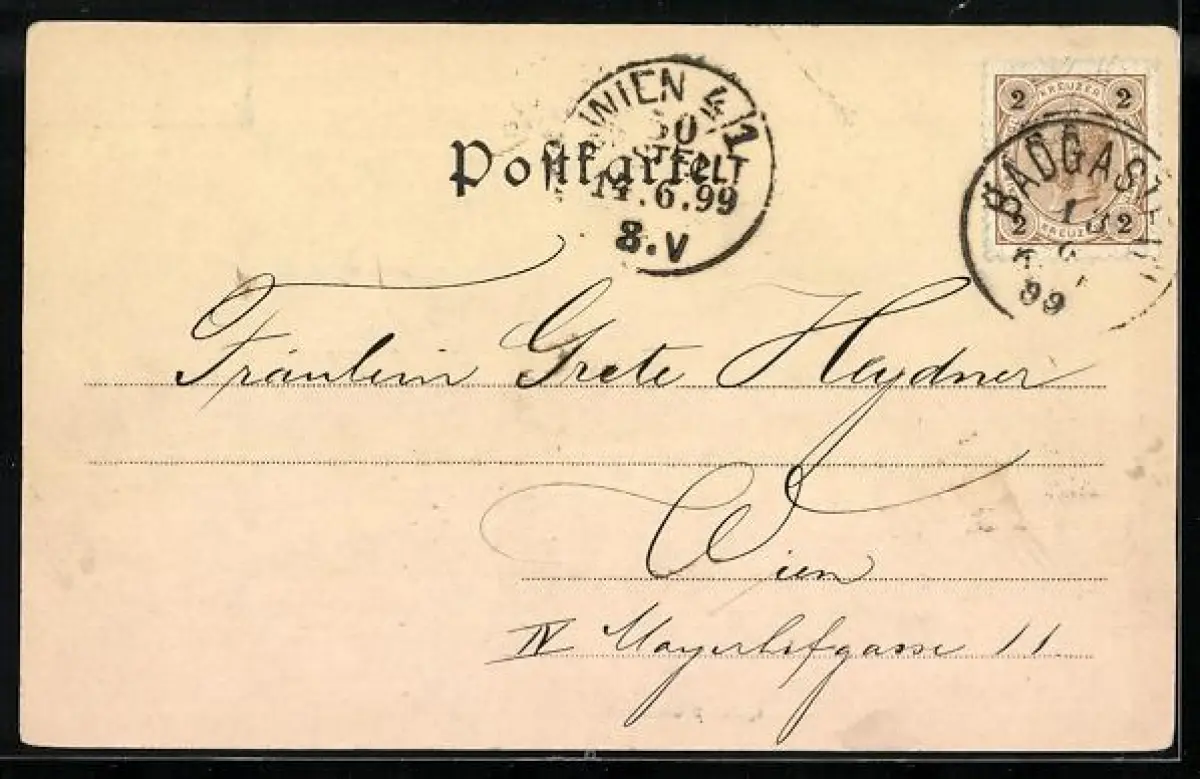 Postkarte
WIEN 4/1
50
BESTELLT
14.6.99
8.V
2 KREUZER 2
2 KREUZER 2
BADGASTEIN
99
Fräulein Grete Heydner
Wien
IV Mayerhofgasse 11.